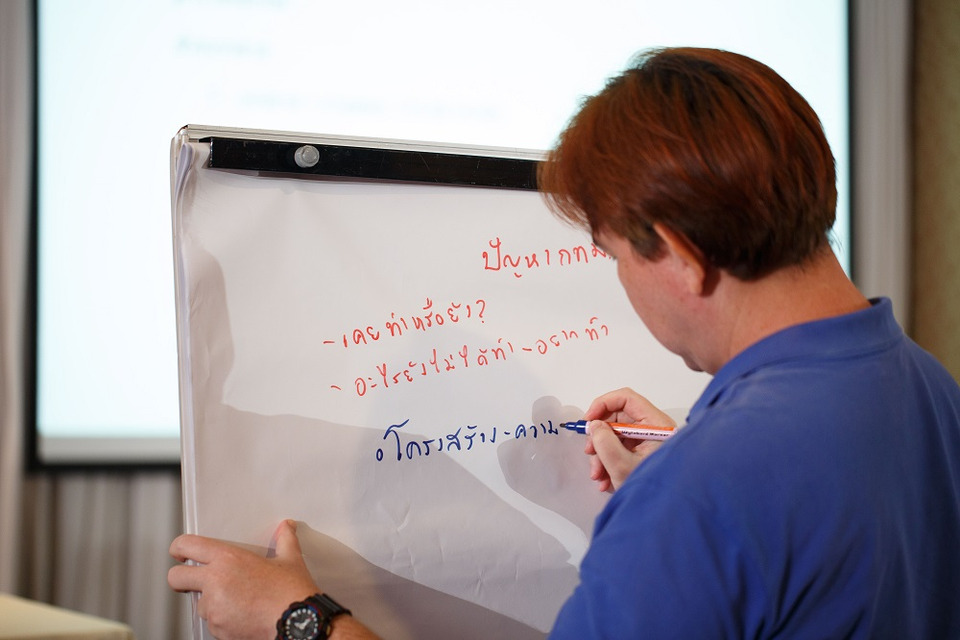 ปัญหา กทม
- เคยทำหรือยัง?
- อะไรยังไม่ได้ทำ - อยากทำ
โครงสร้าง - ความ